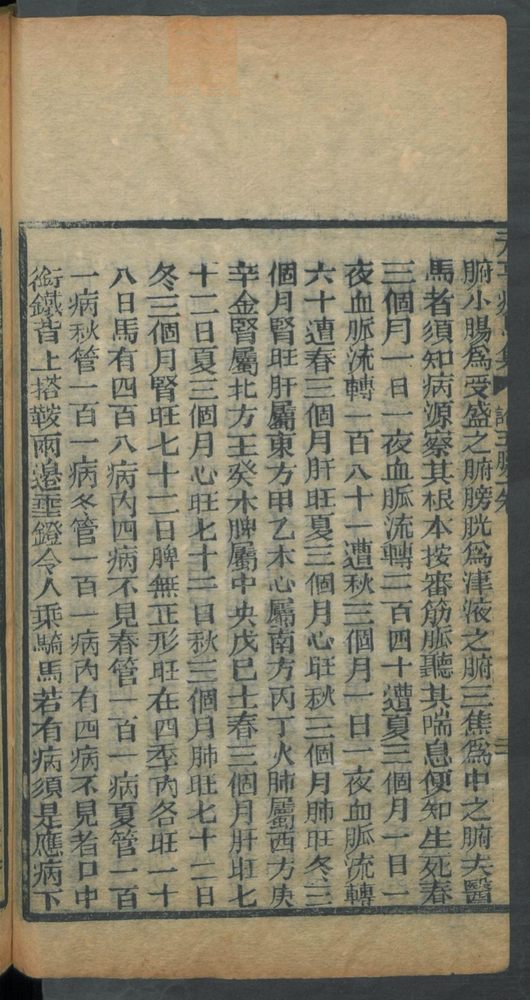 腑小腸爲受盛之腑膀胱爲津液之腑三焦爲中之腑夫醫
馬者須知病源察其根本按審筋脈聽其喘息便知生死春
三個月一日一夜血脈流轉二百四十遭夏三個月一日一
夜血脈流轉一百八十一遭秋三個月一日一夜血脈流轉
六十遭春三個月肝旺夏三個月心旺秋三個月肺旺冬三
個月腎旺肝屬東方甲乙木心屬南方丙丁火肺屬西方庚
辛金腎屬北方王癸木脾屬中央戊巳土春三個月肝旺七
十二日夏三個月心旺七十二日秋三個月肺旺七十二日
冬三個月腎旺七十二日脾無正形旺在四季內各旺一十
八日馬有四百八病內四病不見春管一百一病夏管一百
一病秋管一百一病冬管一百一病內有四病不見者口中
銜鐵昔上搭鞍兩邊垂鐙令人乘騎馬若有病須是應病下